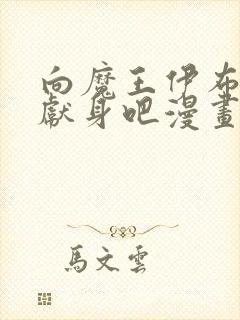 向魔王伊布
獻身吧漫畫
馬文雲